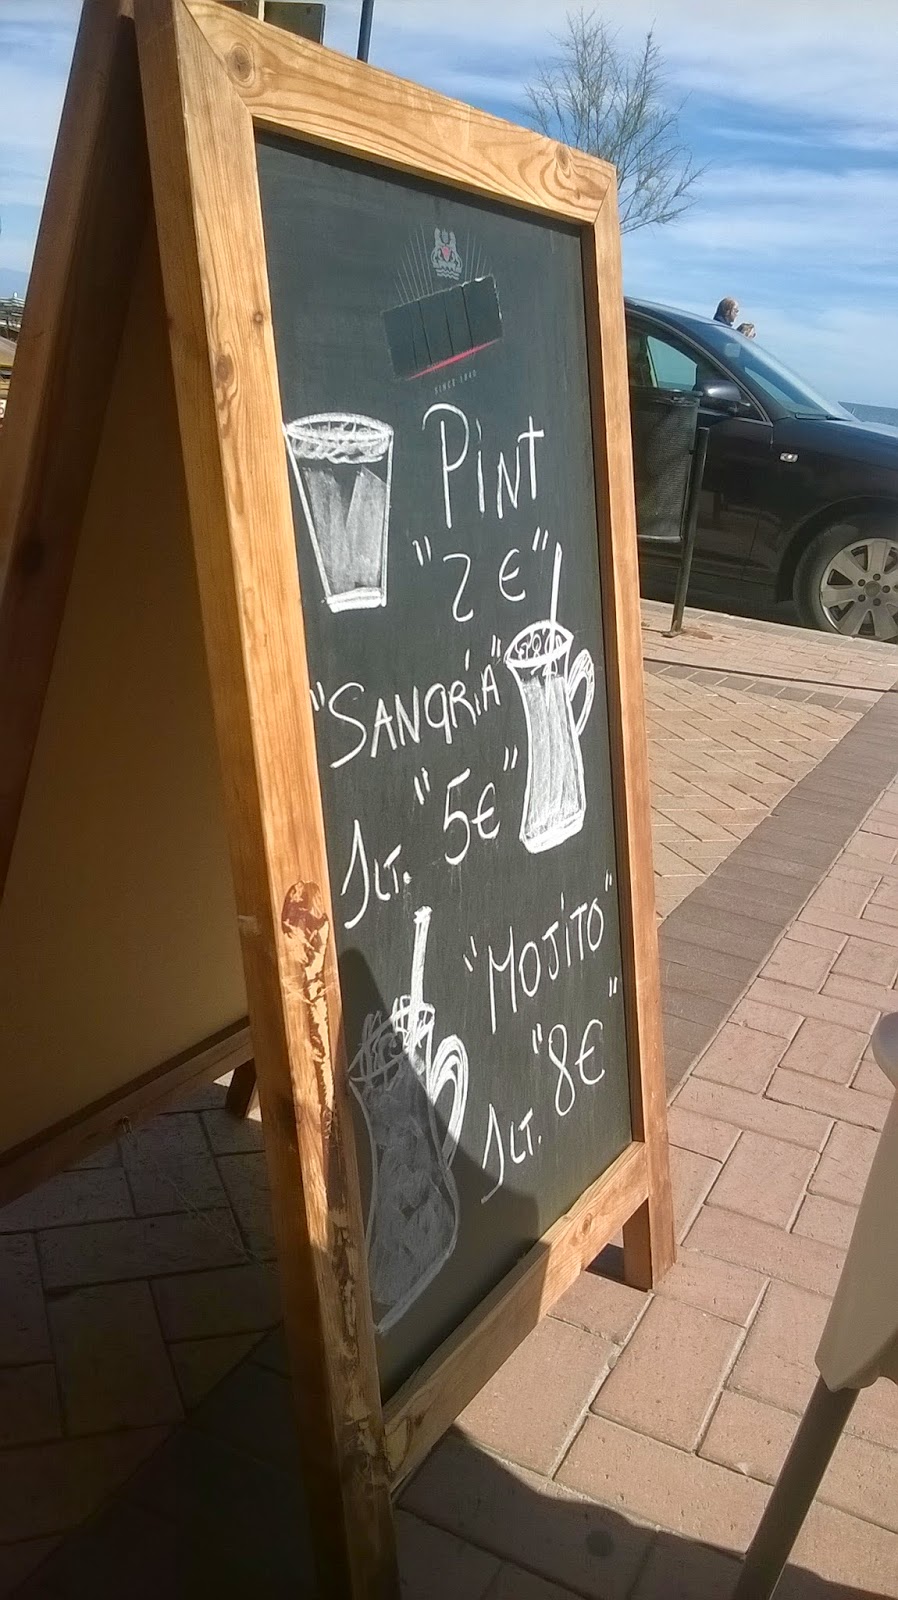 SINCE 1840
PINT
"2 €"
"SANGRÍA"
1LT. "5€"
"MOJITO"
1LT. "8€"